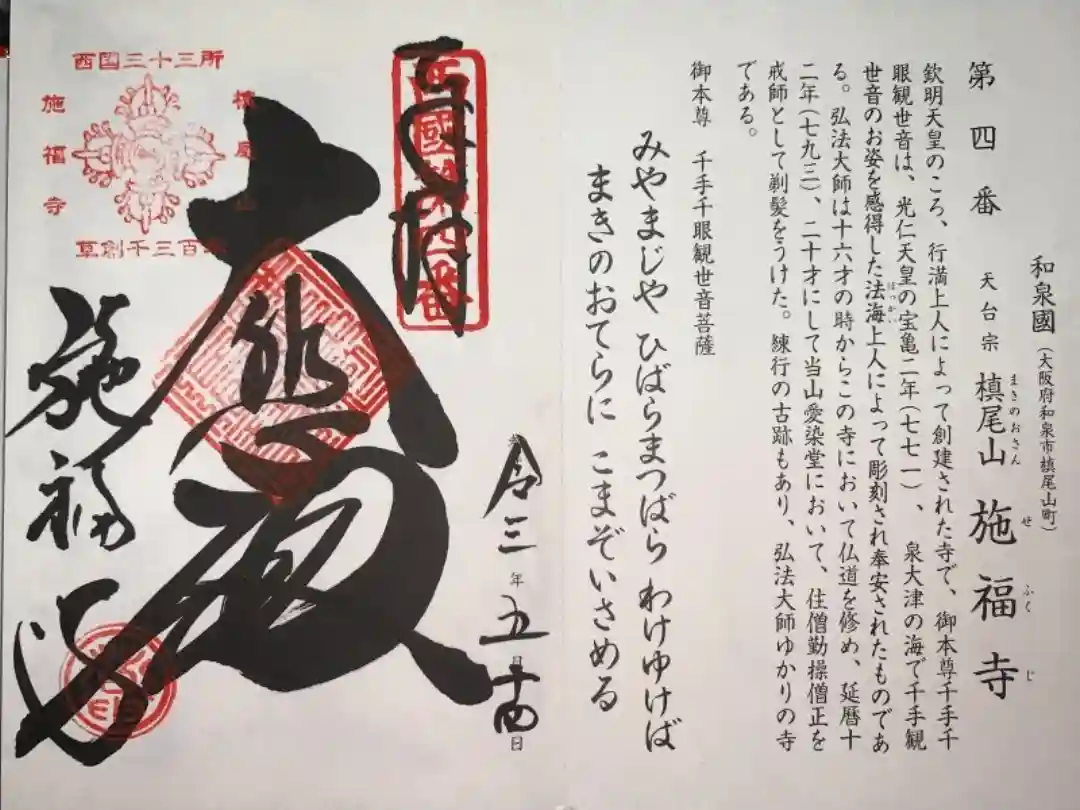 和泉國（大阪府和泉市槙尾山町）
第四番 天台宗 槙尾山 施福寺
まきのおさん せふくじ
欽明天皇のころ、行満上人によって創建された寺で、御本尊千手千
眼観世音は、光仁天皇の宝亀二年（七七一）、泉大津の海で千手観
世音のお姿を感得した法海上人によって彫刻され奉安されたものであ
ほっかい
る。弘法大師は十六才の時からこの寺において仏道を修め、延暦十
二年（七九三）、二十才にして当山愛染堂において、住僧勤操僧正を
戒師として剃髪をうけた。練行の古跡もあり、弘法大師ゆかりの寺
である。
御本尊 千手千眼観世音菩薩
みやまじや ひばらまつばら わけゆけば
まきのおてらに こまぞいさめる
西國第四番
奉拝
令三年五月十四日
大悲殿
施福寺
西国三十三所
槙尾山
施福寺
草創千三百年